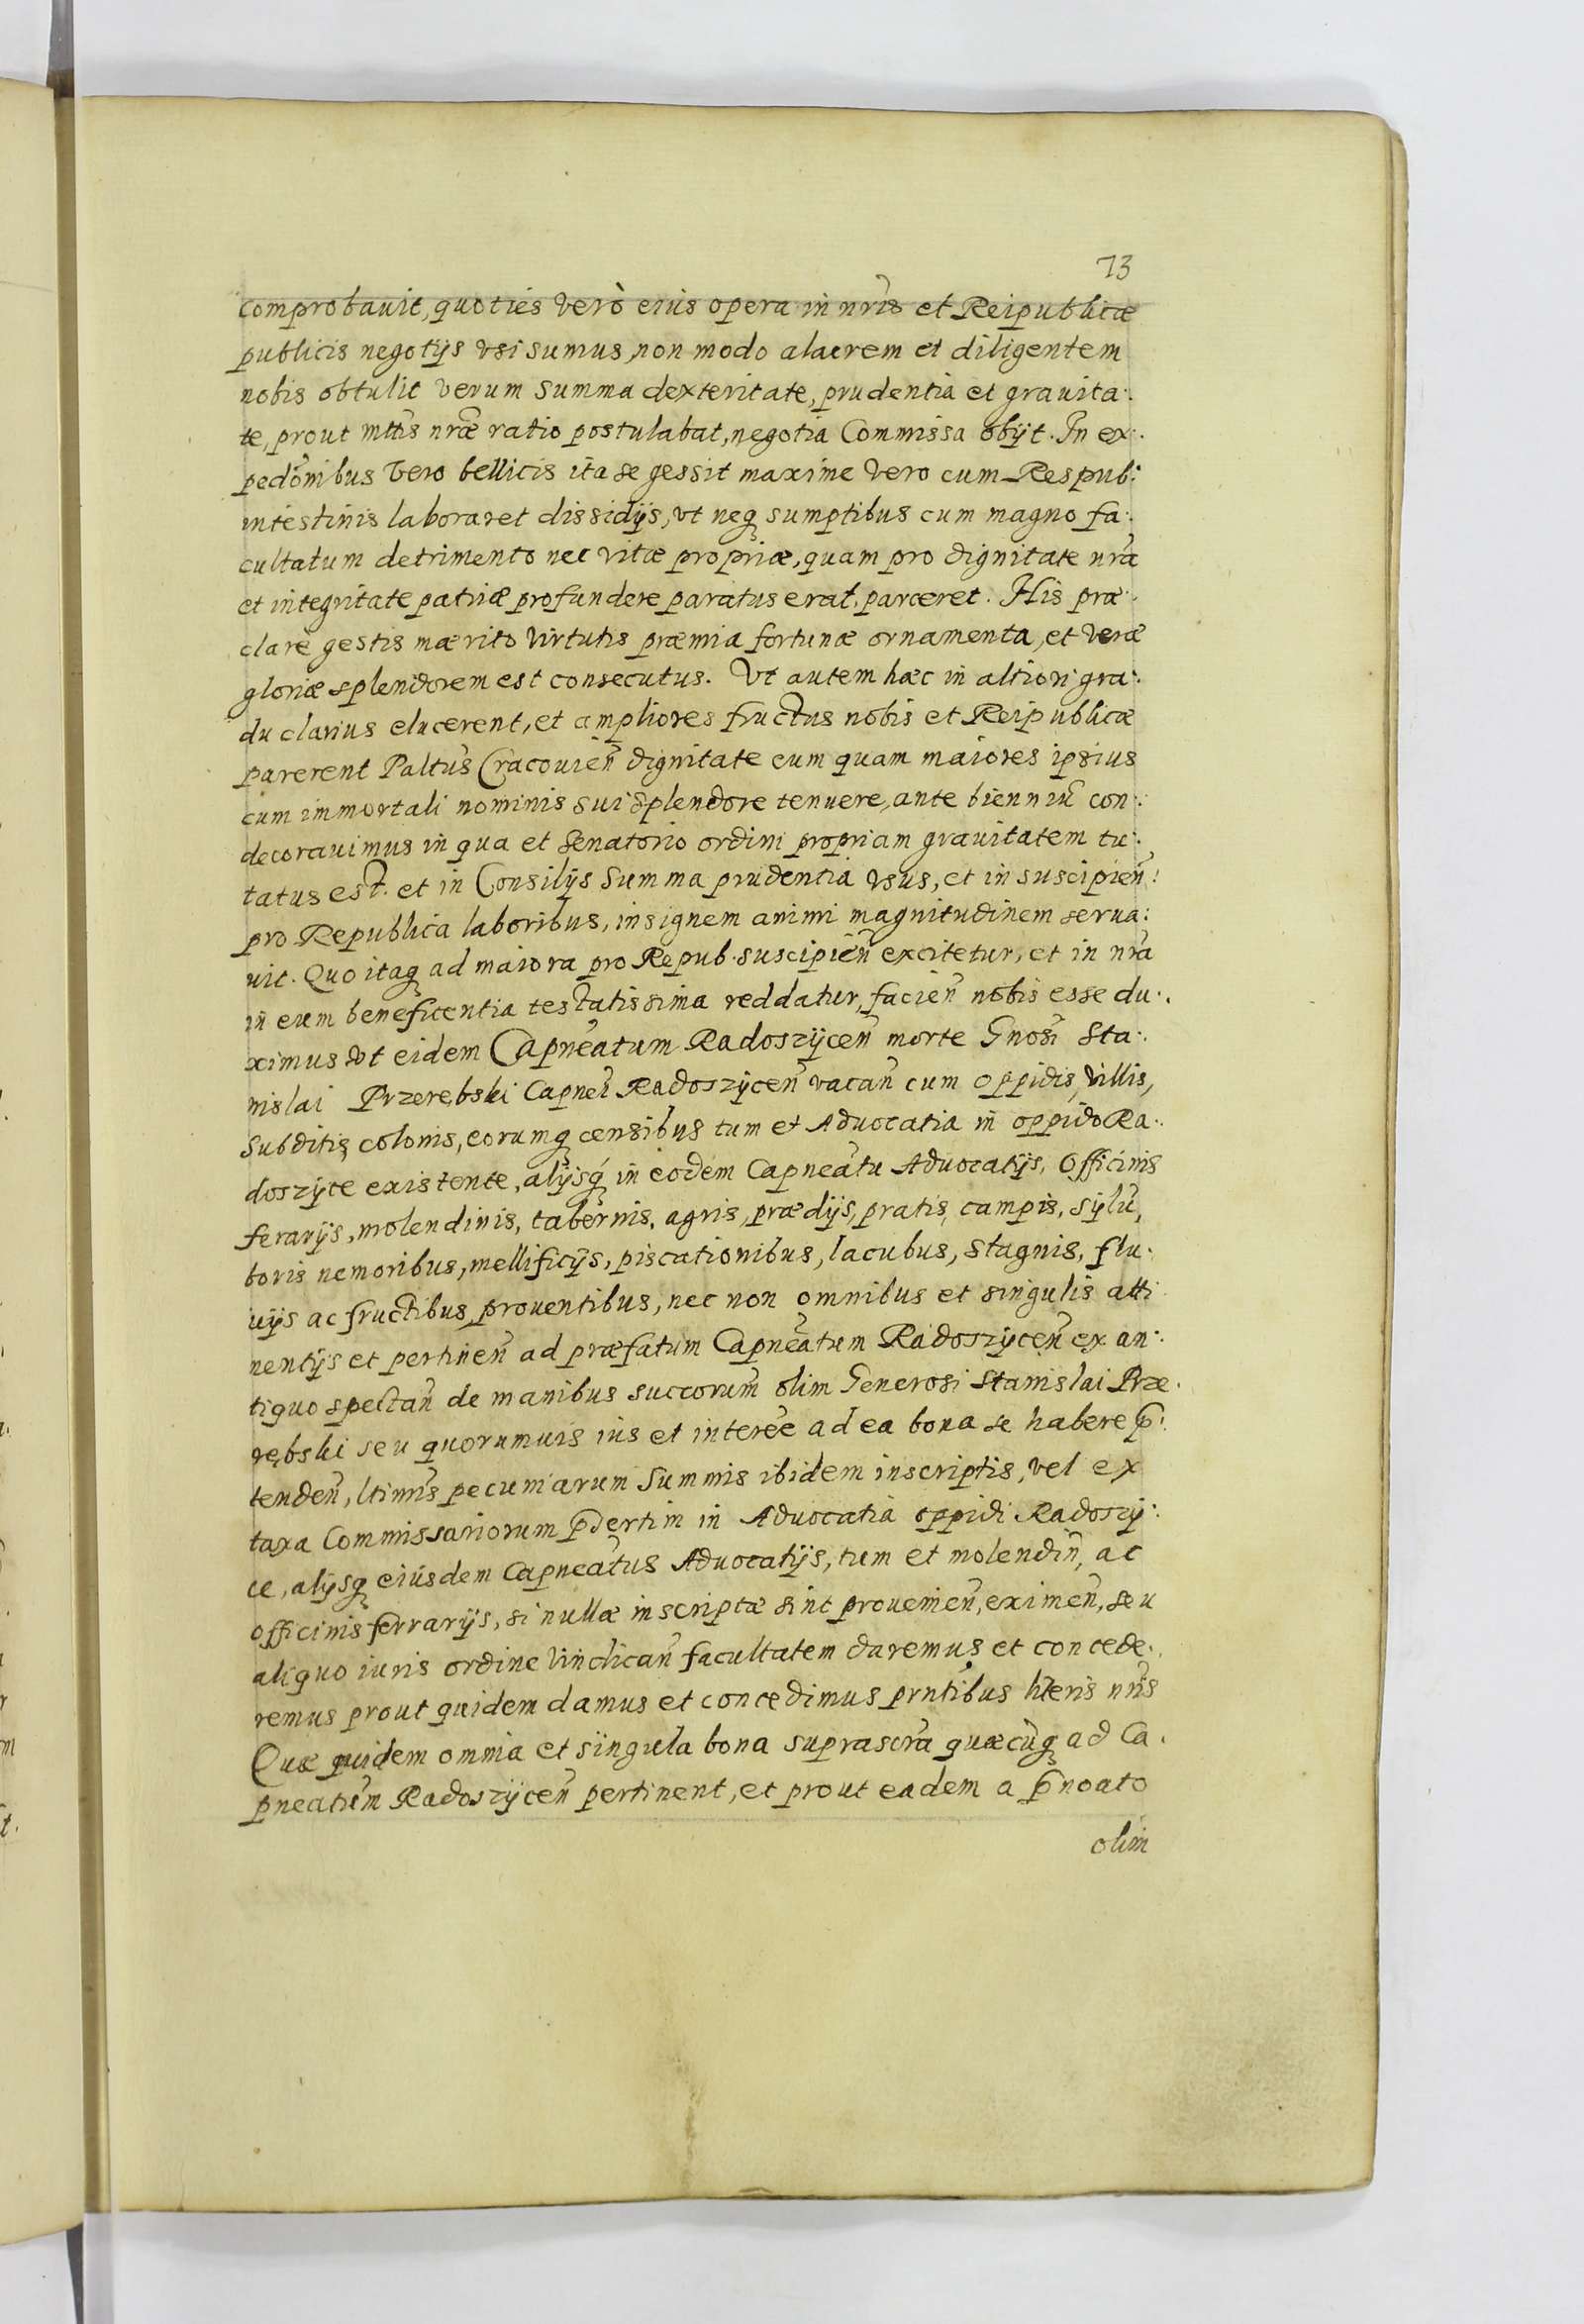 73
comprobauit, quoties verò eius opera in nr̃is et Reipublicæ
publicis negotijs vsi sumus, non modo alacrem et diligentem
nobis obtulit verum summa dexteritate, prudentia et grauita:
te, prout mttis nr̃æ ratio postulabat, negotia Commissa obijt. In ex:
pedõnibus vero bellicis ita se gessit maxime vero cum Respub:
intestinis laboraret dissidijs, vt neq̢ sumptibus cum magno fa:
cultatum detrimento nec vitæ propriæ, quam pro dignitate nr̃a
et integritate patriæ profundere paratus erat, parceret. His præ:
clarè gestis mærito virtutis præmia fortunæ ornamenta, et veræ
gloriæ splendorem est consecutus. Vt autem hæc in altiori gra:
du clarius elucerent, et ampliores fructus nobis et Reipublicæ
parerent Paltus̃ Cracouien̄ dignitate eum quam maiores ipsius
cum immortali nominis sui splendore tenuere, ante bienniũ con:
decorauimus in qua et senatorio ordini propriam grauitatem tu:
tatus est. et in Consilijs summa prudentia vsus, et in suscipien̄:
pro Republica laboribus, insignem animi magnitudinem serua:
uit. Quo itaq̢ ad maiora pro Repub. suscipien̄ excitetur, et in nr̃a
in eum beneficentia testatissima reddatur, facien̄ nobis esse du:
ximus vt eidem Capneãtum Radoszycen̄ morte Gnosi Sta:
nislai Przerębski Capnei Radoszycen̄ vacan̄ cum oppidis, villis,
subditis colonis, eorumq̢ censibus tum et Aduocatia in oppido Ra:
doszyce existente, alijsq̢ in eodem Capneãtu Aduocatijs, Officinis
ferarijs, molendinis, tabernis, agris, prædijs, pratis, campis, syluĩ,
boris nemoribus, mellificijs, piscationibus, lacubus, stagnis, flu:
uijs ac fructibus, prouentibus, nec non omnibus et singulis atti
nentijs et pertinen̄ ad præfatum Capneãtum Radoszycen̄ ex an:
tiquo spectan̄ de manibus succorum̃ olim Generosi Stanislai Prze:
rębski seu quorumuis ius et interẽe ad ea bona se habere p̃:
tenden̄, ltimis̃ pecuniarum summis ibidem inscriptis, vel ex
taxa Commissariorum p̃sertim in Aduocatia oppidi Radoszy:
ce, alijsq̢ eiusdem Capneãtus Aduocatijs, tum et molendin̄, ac
officinis ferrarijs, si nullæ inscriptæ sint prouenien̄, eximen̄, seu
aliquo iuris ordine vindican̄ facultatem daremus et concede:
remus prout quidem damus et concedimus prñtibus lr̃eris nr̃is
Quæ quidem omnia et singula bona suprascrã quæcũq̢ ad Ca:
pneatum̃ Radoszycen̄ pertinent, et prout eadem a p̃noato
olim